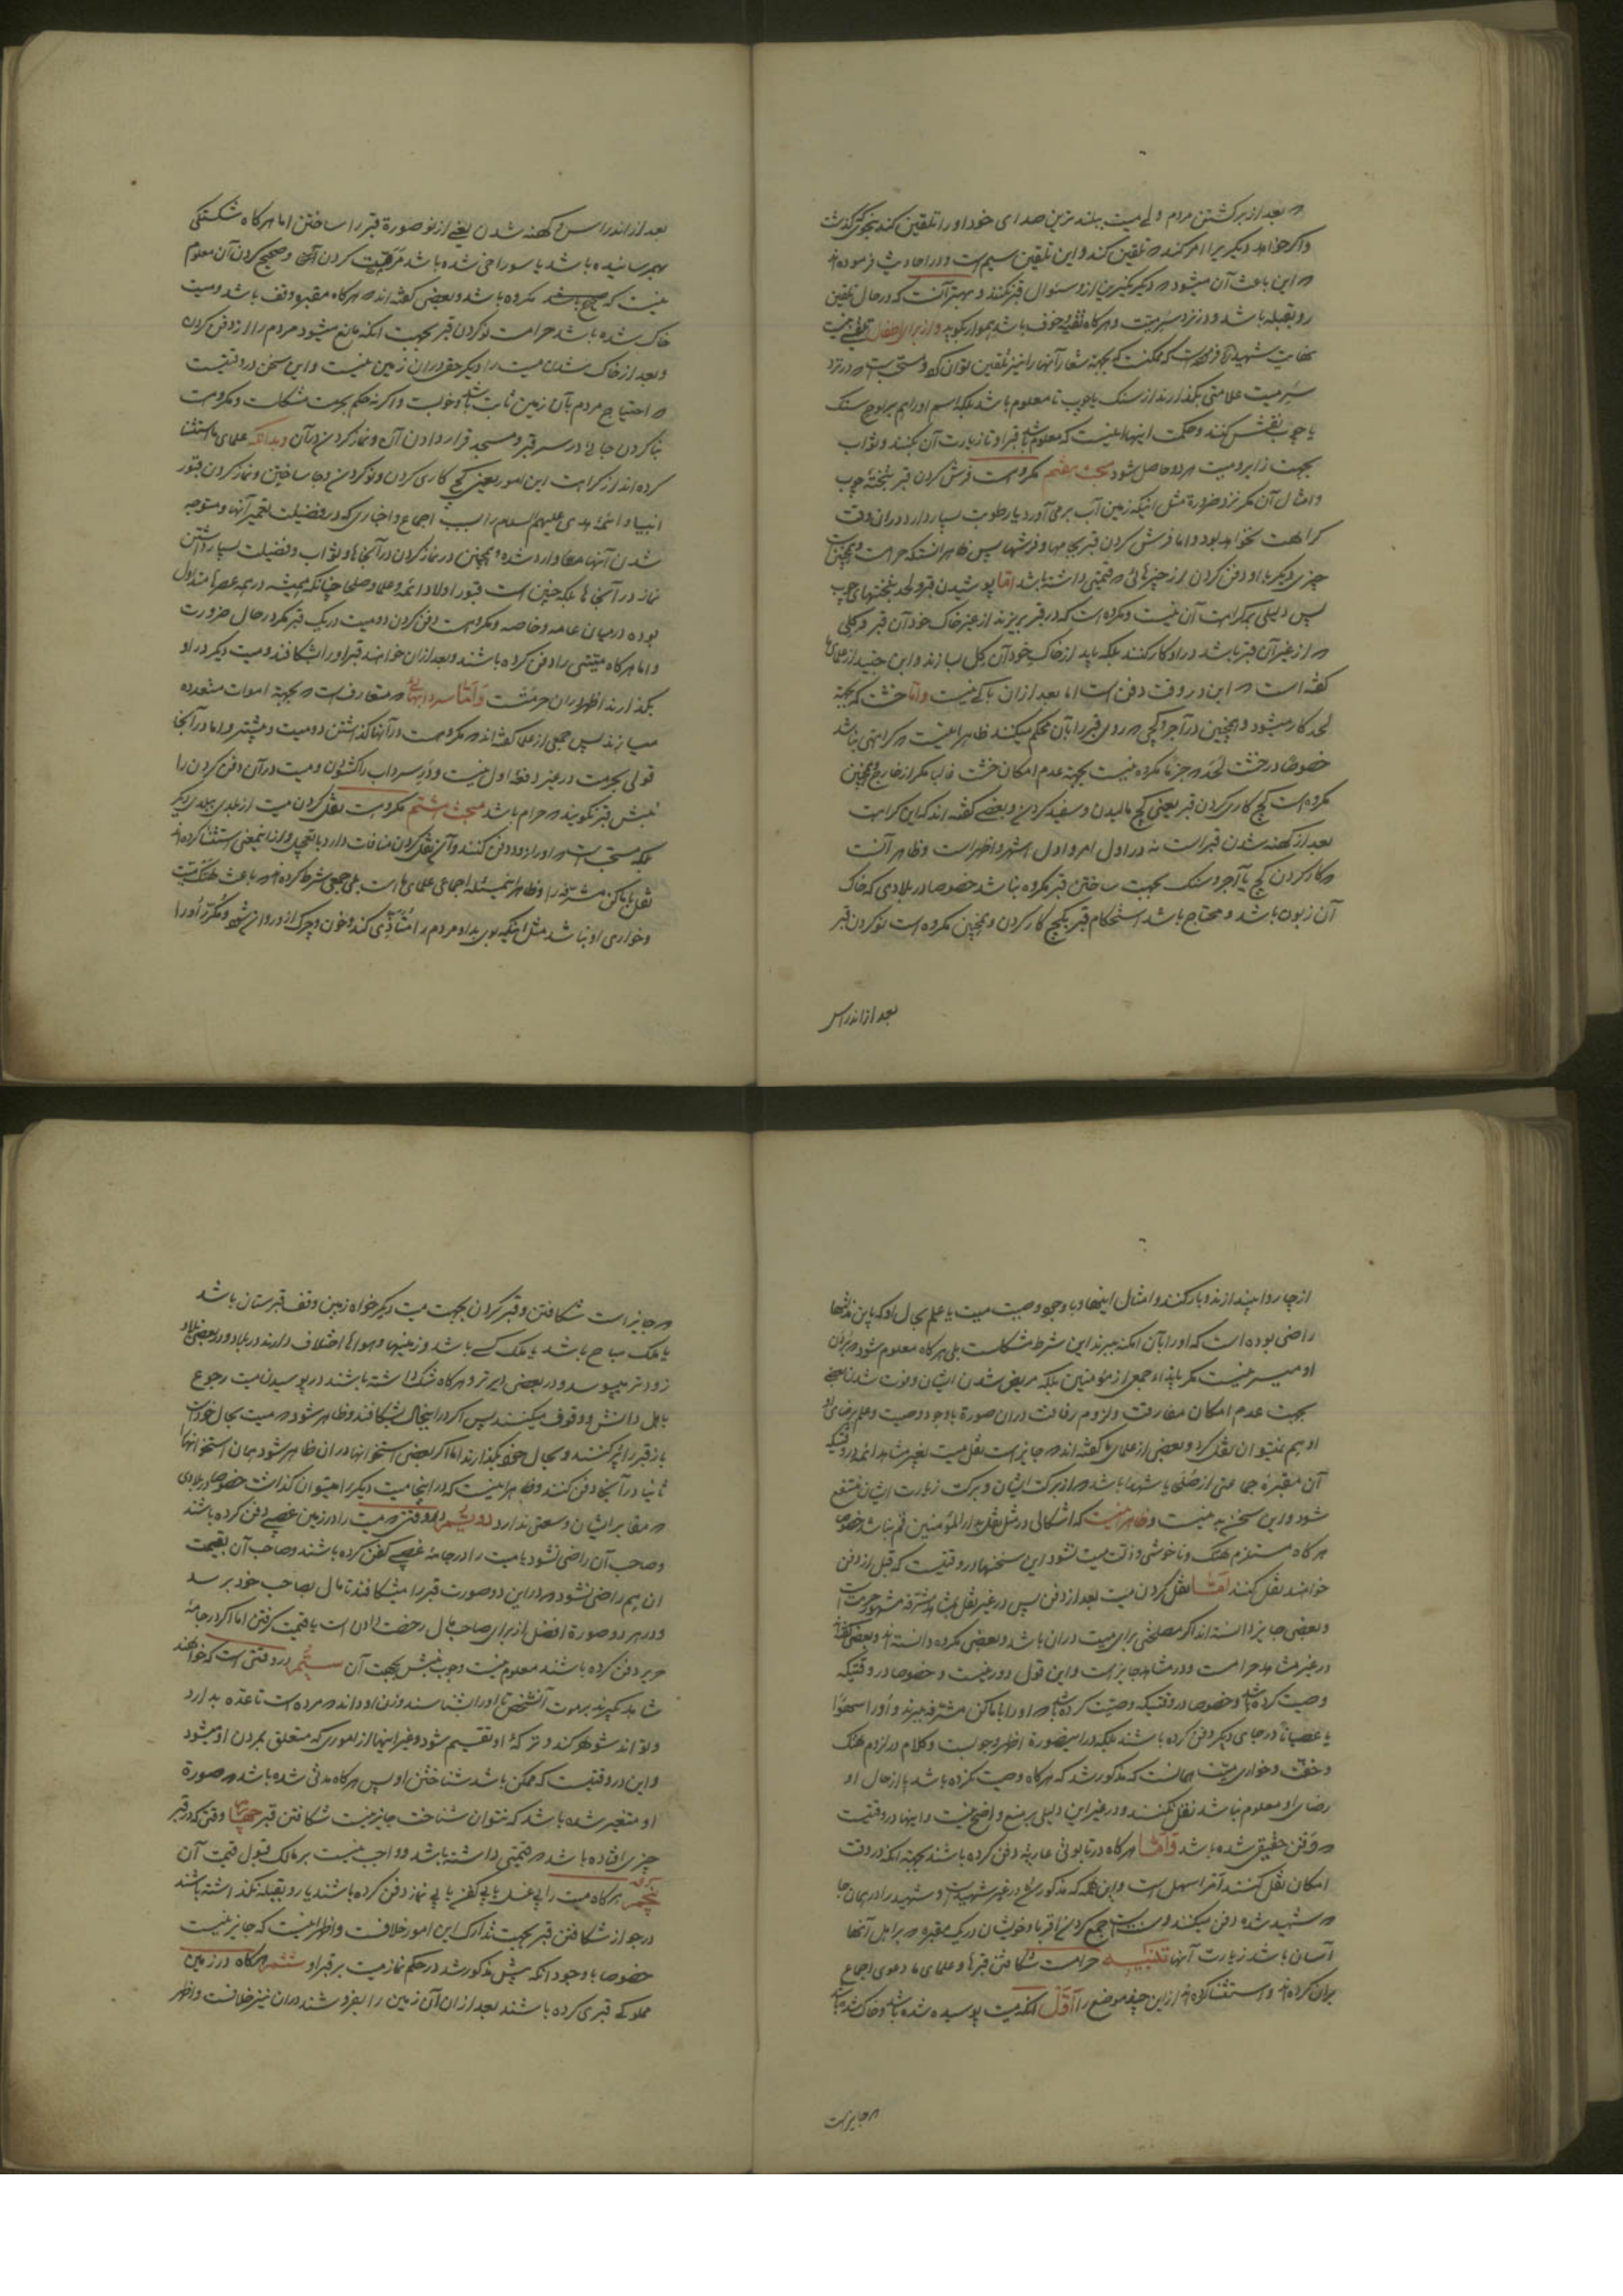 که بعد از برگشتن مردم ولی میت ببلندترین صدای خود او را تلقین کند بنحوی که گذشت
و اگر خواهد دیگری را امر کند که تلقین کند و این تلقین سیم است و در احادیث فرموده‌اند
که این باعث آن میشود که دیگر نکیرین از او سئوال قبر نکنند و بهتر آنست که در حال تلقین
رو بقبله باشد و در نزد سر میت و هرگاه تقیه و خوف باشد هموار بگوید و از برای اطفال تلقین نیست
سر میت علامتی بگذارند از سنک یا چوب تا معلوم باشد بلکه اسم او را هم بر لوح سنک
یا چوب نقش کنند و حکمت اینها اینست که معلوم باشد قبر او تا زیارت آن بکنند و ثواب
بجهت زایر و میت هر دو حاصل شود مبحث هفتم مکروه است فرش کردن قبر بتختهٔ چوب
و امثال آن مگر نزد ضرورة مثل اینکه زمین آب بر می‌آورد یا رطوبت بسیار دارد در آن وقت
کراهت نخواهد بود و اما فرش کردن قبر بجامها و فرشها پس ظاهر آنست که حرامست و همچنین است
چیزی دیگر با او دفن کردن از چیزهائی که قیمتی داشته باشد اما پوشیدن قبر و لحد بتختهای چوب
پس دلیلی بر کراهت آن نیست و مکروه است که در قبر بریزند از غیر خاک خود آن قبر و گلی
که از غیر آن قبر باشد در او کار کنند بلکه باید از خاک خود آن گل بسازند و ابن جنید از علمای ما
گفته است که این در وقت دفن است اما بعد از آن باکی نیست و اما خشت که بجهة
لحد کار میشود و همچنین در آجر و گچی که روی قبر را بآن محکم میکنند ظاهر اینست که کراهتی نباشد
خصوصا در خشت لحد که جزما مکروه نیست بجهة عدم امکان خشت غالبا مگر از خارج و همچنین
مکروه است گچ کاری کردن قبر یعنی گچ مالیدن و سفید کردن و بعضی گفته‌اند که این کراهت
بعد از کهنه شدن قبر است نه در اول امر و اول اشهر و اظهر است و ظاهر آنست
که کار کردن گچ یا آجر و سنک بجهت ساختن قبر مکروه نباشد خصوصا در بلادی که خاک
آن زبون باشد و محتاج باشد استحکام قبر بگچ کار کردن و همچنین مکروه است نو کردن قبر
بعد از اندراس
بعد از اندراس و کهنه شدن یعنی از نو صورة قبر را ساختن اما هرگاه شکستگی
بهم رسانیده باشد یا سوراخی شده باشد مرمت کردن آن و صحیح کردن آن معلوم
نیست که مکروه باشد و بعضی گفته‌اند که هرگاه مقبره وقف باشد و میت
خاک شده باشد حرامست نو کردن قبر بجهت آنکه مانع میشود مردم را از دفن کردن
و بعد از خاک شدن میت را دیگر حق در آن زمین نیست و این سخن در وقتیست
که احتیاج مردم بآن زمین ثابت باشد و خوبست و اگر نه حکم بحرمت مشکلست و مکروهست
بنا کردن جائی در سر قبر و مسجد قرار دادن آن و نماز کردن در آن و بدانکه علمای ما استثنا
کرده‌اند از کراهت این امور یعنی گچ کاری کردن و نو کردن و جا ساختن و نماز کردن قبور
انبیا و ائمهٔ هدی علیهم السلام را بسبب اجماع و اخباری که در فضیلت تعمیر آنها و متوجه
شدن آنها وارد شده و همچنین در نماز کردن در آنجاها و ثواب و فضیلت بسیار داشتن
نماز در آنجاها بلکه چنین است قبور اولاد ائمه و علما و صلحا چنانکه همیشه در همه عصرها متداول
بوده در میان عامه و خاصه و مکروهست دفن کردن دو میت در یک قبر مگر در حال ضرورت
و اما هرگاه میتی را دفن کرده باشند و بعد از آن خواهند قبر او را بشکافند و میت دیگر در او
بگذارند اظهر در آن حرمتست و اما سردابهائی که متعارف است که بجهة اموات متعدده
میسازند پس جمعی از علما گفته‌اند که مکروهست در آنها گذاشتن دو میت و بیشتر و اما در آنجا
قولی بحرمت در غیر دفعهٔ اول نیست و در سرداب را گشودن و میت در آن دفن کردن را
نبش قبر نگویند که حرام باشد مبحث هشتم مکروهست نقل کردن میت از بلدی ببلدی دیگر
بلکه مستحب است که او را زود دفن کنند و این نقل کردن منافات دارد با تعجیل و از اینمعنی استثنا کرده‌اند
نقل باماکن مشرفه را و ظاهرا اینمسئله اجماعی علمای ما است بلی جمعی شرط کرده‌اند که باعث هتک میت
و خواری او نباشد مثل اینکه بوی بد او مردم را متأذی کند و خون و چرک از او روانه شود و مکرر او را
از چاروا بیندازند و بار کنند و امثال اینها و با وجود وصیت میت یا علم بحال او که باین مذلتها
راضی بوده است که او را بآن امکنه میبرند این شرط مشکلست بلی هرگاه معلوم شود که بردن
او میسر نیست مگر بایذاء جمعی از مؤمنین بلکه مریض شدن ایشان و فوت شدن بعضی
بجهت عدم امکان مفارقت و لزوم رفاقت در آن صورة با وجود وصیت و علم برضای او
او هم نمیتوان نقل کرد و بعضی از علمای ما گفته‌اند که جایز است نقل میت بغیر مشاهد ائمه در وقتیکه
آن مقبرهٔ جماعتی از صلحا یا شهدا باشد که از برکت ایشان و برکت زیارت ایشان منتفع
شود و این سخن بد نیست و ظاهر اینست که اشکالی در مثل نقل بدار المؤمنین قم نباشد خصوصا
هرگاه مستلزم هتک و ناخوشی و ذلت میت نشود این سخنها در وقتیست که قبل از دفن
خواهند نقل کنند اما نقل کردن میت بعد از دفن پس در غیر نقل بمشاهد مشرفه مشهور حرمت است
و بعضی جایز دانسته‌اند اگر مصلحتی برای میت در آن باشد و بعضی مکروه دانسته‌اند و بعضی گفته‌اند
در غیر مشاهد حرامست و در مشاهد جایز است و این قول دور نیست و خصوصا در وقتیکه
وصیت کرده باشد و خصوصا در وقتیکه وصیت کرده باشد که او را باماکن مشرفه ببرند و او را سهوا
یا عصیانا در جای دیگر دفن کرده باشند بلکه در اینصورة اظهر وجوبست و کلام در لزوم هتک
و خفت و خواری میت همانست که مذکور شد که هرگاه وصیت نکرده باشد یا از حال او
رضای او معلوم نباشد نقل نکنند و در غیر این دلیلی بر منع واضح نیست و اینها در وقتیست
که دفن حقیقی شده باشد و اما هرگاه در تابوتی عاریه دفن کرده باشند بجهة آنکه در وقت
امکان نقل کنند امر اسهل است و این همه که مذکور شد در غیر شهید است و شهید را در همان جا
که شهید شده دفن میکنند و سنت است جمع کردن اقربا و خویشان در یک مقبره که بر اهل آنها
آسان باشد زیارت آنها تنبیه حرامست شکافتن قبرها و علمای ما دعوی اجماع
بر آن کرده‌اند و استثنا کرده‌اند از این چند موضع را اول آنکه میت پوسیده شده باشد و خاک شده باشد
که جایز است
که جایز است شکافتن و قبر کردن بجهت میت دیگر خواه زمین وقف قبرستان باشد
یا ملک مباح باشد یا ملک کسی باشد و زمینها و هواها اختلاف دارند در بلاد و در بعضی بلاد
زودتر میپوسد و در بعضی دیرتر و هرگاه شک داشته باشند در پوسیدن میت رجوع
باهل دانش و وقوف میکنند پس اگر در اینحال بشکافند و ظاهر شود که میت بحال خود است
باز قبر را پر کنند و بحال خود بگذارند اما اگر بعضی استخوانها در آن ظاهر شود همان استخوانها را
ثانیا در آنجا دفن کنند و ظاهر اینست که در اینجا میت دیگر را میتوان گذاشت خصوصا در بلادی
که مقابر ایشان وسعتی ندارد دویم در وقتی که میت را در زمین غصبی دفن کرده باشند
و صاحب آن راضی نشود یا میت را در جامهٔ غصبی کفن کرده باشند و صاحب آن بقیمت
آن هم راضی نشود که در این دو صورت قبر را میشکافند تا مال بصاحب خود برسد
و در هر دو صورة افضل از برای صاحب مال رخصت دادن است یا قیمت گرفتن اما اگر در جامهٔ
حریر دفن کرده باشند معلوم نیست وجوب نبش بجهت آن سیم در وقتی است که خواهند
شاهد بگیرند بر موت آنشخص تا او را بشناسند و زن او داند که مرده است تا عده بدارد
و تواند شوهر کند و ترکهٔ او تقسیم شود و غیر اینها از اموری که متعلق بمردن او میشود
و این در وقتیست که ممکن باشد شناختن او پس هرگاه مدتی شده باشد که صورة
او متغیر شده باشد که نتوان شناخت جایز نیست شکافتن قبر چهارم وقتی که در قبر
چیزی افتاده باشد که قیمتی داشته باشد و واجب نیست بر مالک قبول قیمت آن
پنجم هرگاه میت را بی غسل یا بی کفن یا بی نماز دفن کرده باشند یا رو بقبله نگذاشته باشند
در جواز شکافتن قبر بجهت تدارک این امور خلافست و اظهر اینست که جایز نیست
خصوصا با وجود آنکه پیش مذکور شد در حکم نماز میت بر قبر او ششم هرگاه در زمین
مملوکی قبری کرده باشند بعد از آن آن زمین را بفروشند در آن نیز خلافست و اظهر